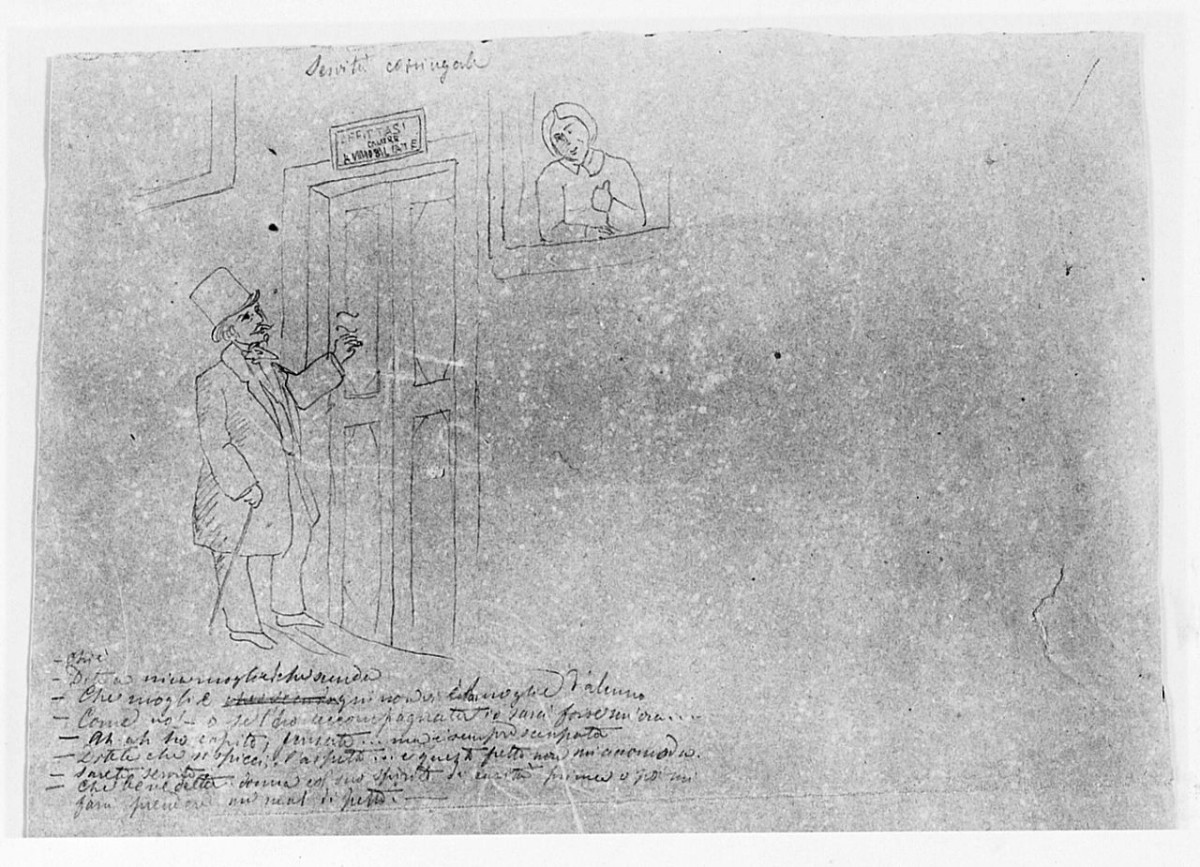 Servitù coniugale
AFFITTASI
CAMERE
AMMOBILIATE
– Chi è
– Dite a mia moglie che scenda
– Che moglie qui non vi è la moglie d'alcuno
– Come no! – o se l'ho accompagnata io sarà forse un'ora....
– Ah ah ho capito, scusate... ma è sempre occupata
– Ditele che si spicci, l'aspetto... e questa non mi accomoda.
– Sarete servito
– Che benedetta donna col suo spirito di carità prima o poi mi
farà prendere un mal di petto. —